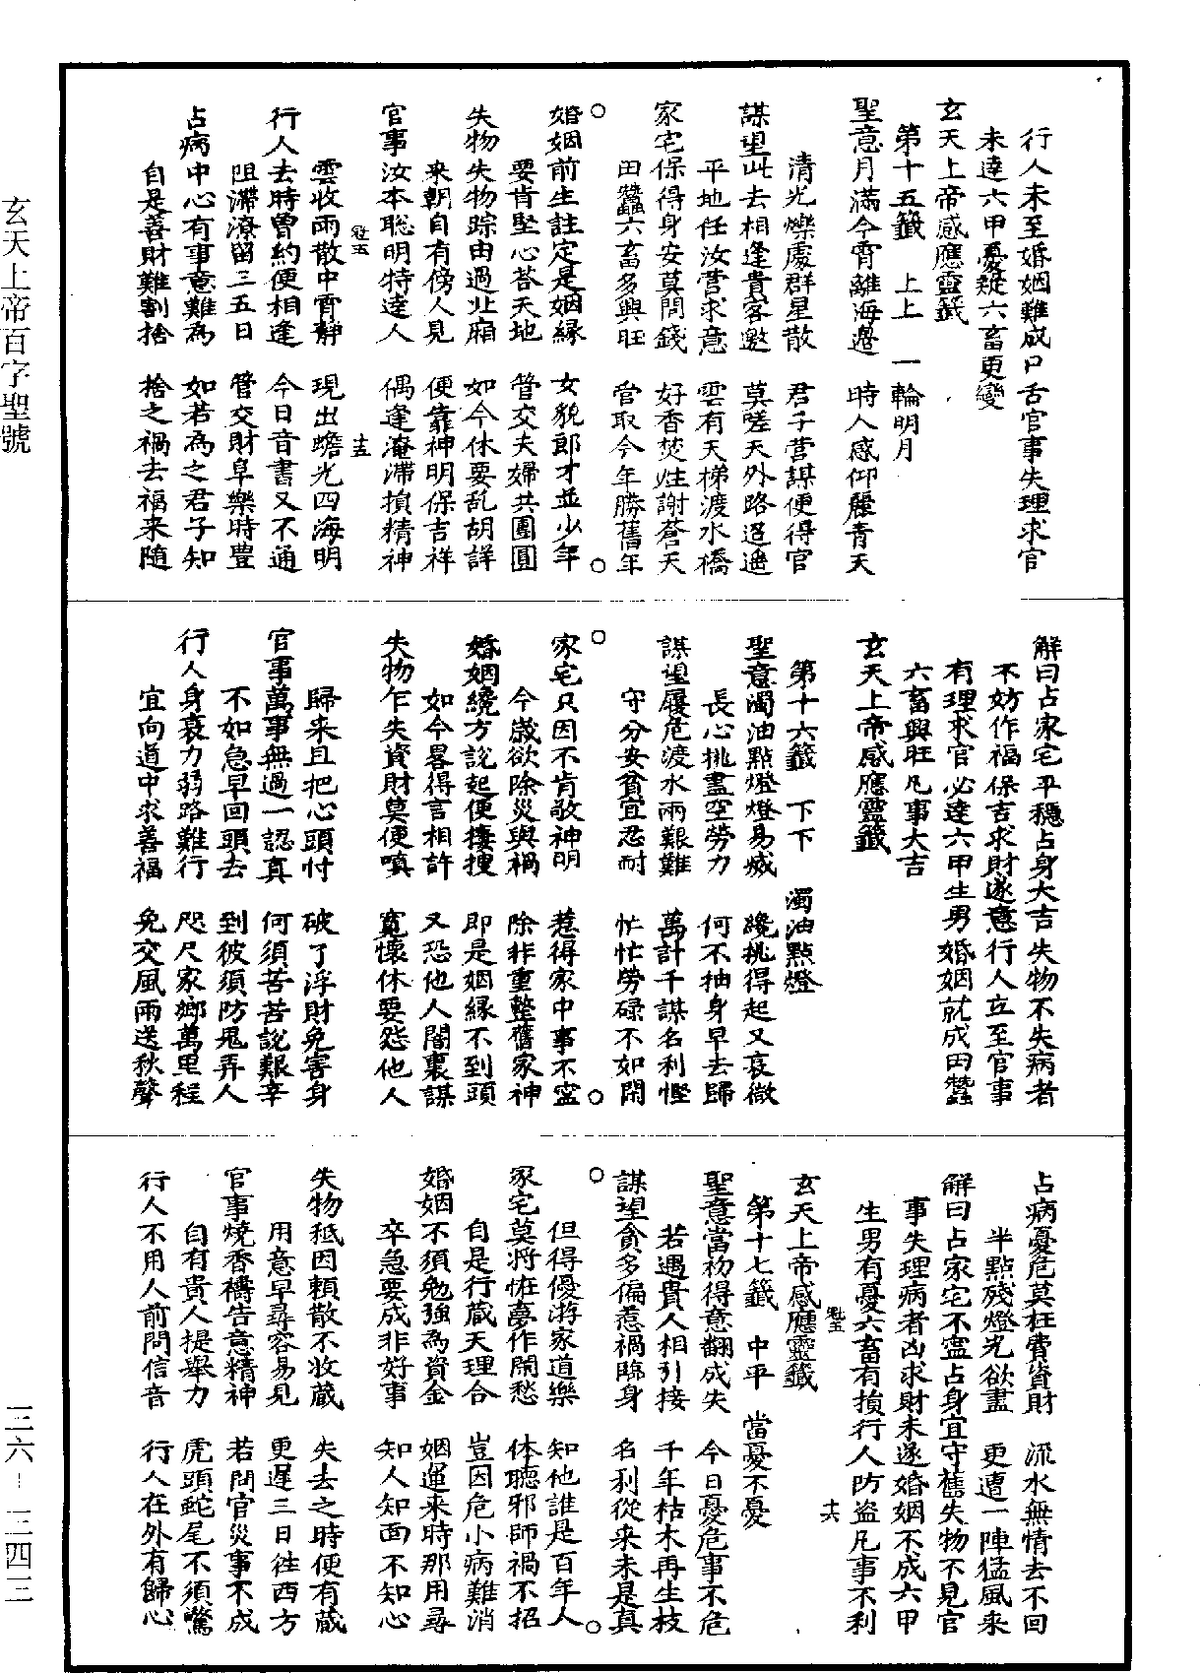 行人未至婚姻難成口舌官事失理求官
未達六甲憂疑六畜更變
玄天上帝感應靈籤
第十五籤 上上 一輪明月
聖意月滿今霄離海邊 時人感仰麗青天
清光爍處群星散 君子營謀便得官
謀望此去相逢貴客邀 莫嗟天外路迢遥
平地任汝營求意 雲有天梯渡水橋
家宅保得身安莫問錢 好香焚炷謝蒼天
田蠶六畜多興旺 管取今年勝舊年
○ ○
婚姻前生註定是姻緣 女貌郎才並少年
要肯堅心荅天地 管交夫婦共團圓
失物失物踪由過北廂 如今休要乱胡詳
來朝自有傍人見 便靠神明保吉祥
官事汝本聰明特達人 偶逢淹滯損精神
魁五 十五
雲收雨散中霄靜 現出蟾光四海明
行人去時曾約便相逢 今日音書又不通
阻滯潦留三五日 管交財阜樂時豊
占病中心有事意難為 如若為之君子知
自是善財難割捨 捨之禍去福来随
解曰占家宅平穩占身大吉失物不失病者
不妨作福保吉求財遂意行人立至官事
有理求官必達六甲生男婚姻就成田蠶
六畜興旺凡事大吉
玄天上帝感應靈籤
第十六籤 下下 濁油點燈
聖意濁油點燈燈易滅 纔挑得起又衰微
長心挑盡空勞力 何不抽身早去歸
謀望履危渡水兩艱難 萬計千謀名利慳
守分安貧宜忍耐 忙忙勞碌不如閑
○ ○
家宅只因不肯敬神明 惹得家中事不寍
今歲欲除災與禍 除非重整舊家神
婚姻纔方說起便摟搜 即是姻緣不到頭
如今畧得言相許 又恐他人闇裏謀
失物乍失資財莫便嗔 寬懷休要怨他人
歸来且把心頭忖 破了浮財免害身
官事萬事無過一認真 何須苦苦說艱辛
不如急早回頭去 到彼須防鬼弄人
行人身衰力弱路難行 咫尺家鄉萬里程
宜向道中求善福 免交風雨送秋聲
占病憂危莫枉費資財 流水無情去不回
半點殘燈光欲盡 更遭一陣猛風来
解曰占家宅不寍占身宜守舊失物不見官
事失理病者凶求財未遂婚姻不成六甲
生男有憂六畜有損行人防盗凡事不利
魁五 十六
玄天上帝感應靈籤
第十七籤 中平 當憂不憂
聖意當初得意翻成失 今日憂危事不危
若遇貴人相引接 千年枯木再生枝
謀望貪多偏惹禍臨身 名利從来未是真
○ ○
但得優游家道樂 知他誰是百年人
家宅莫将恠夢作閑愁 休聽邪師禍不招
自是行藏天理合 豈因危小病難消
婚姻不須勉強為資金 姻運来時那用尋
卒急要成非好事 知人知面不知心
失物秪因頼散不收蔵 失去之時便有蔵
用意早尋容易見 更遲三日徃西方
官事燒香禱告意精神 若問官災事不成
自有貴人提舉力 虎頭蛇尾不須驚
行人不用人前問信音 行人在外有歸心
玄天上帝百字聖號
三六－三四三